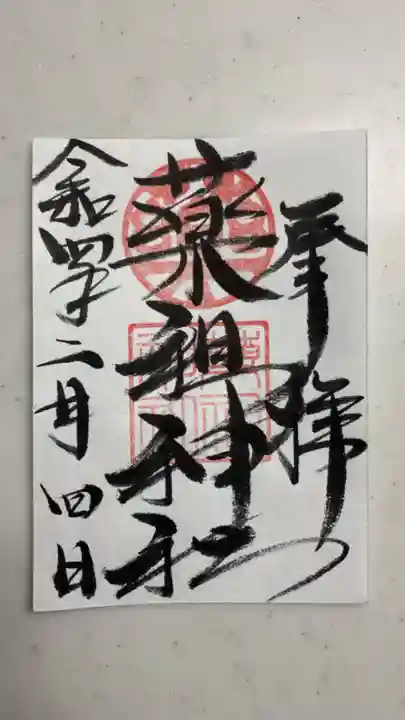 奉拝
薬祖神社
令和四年二月四日